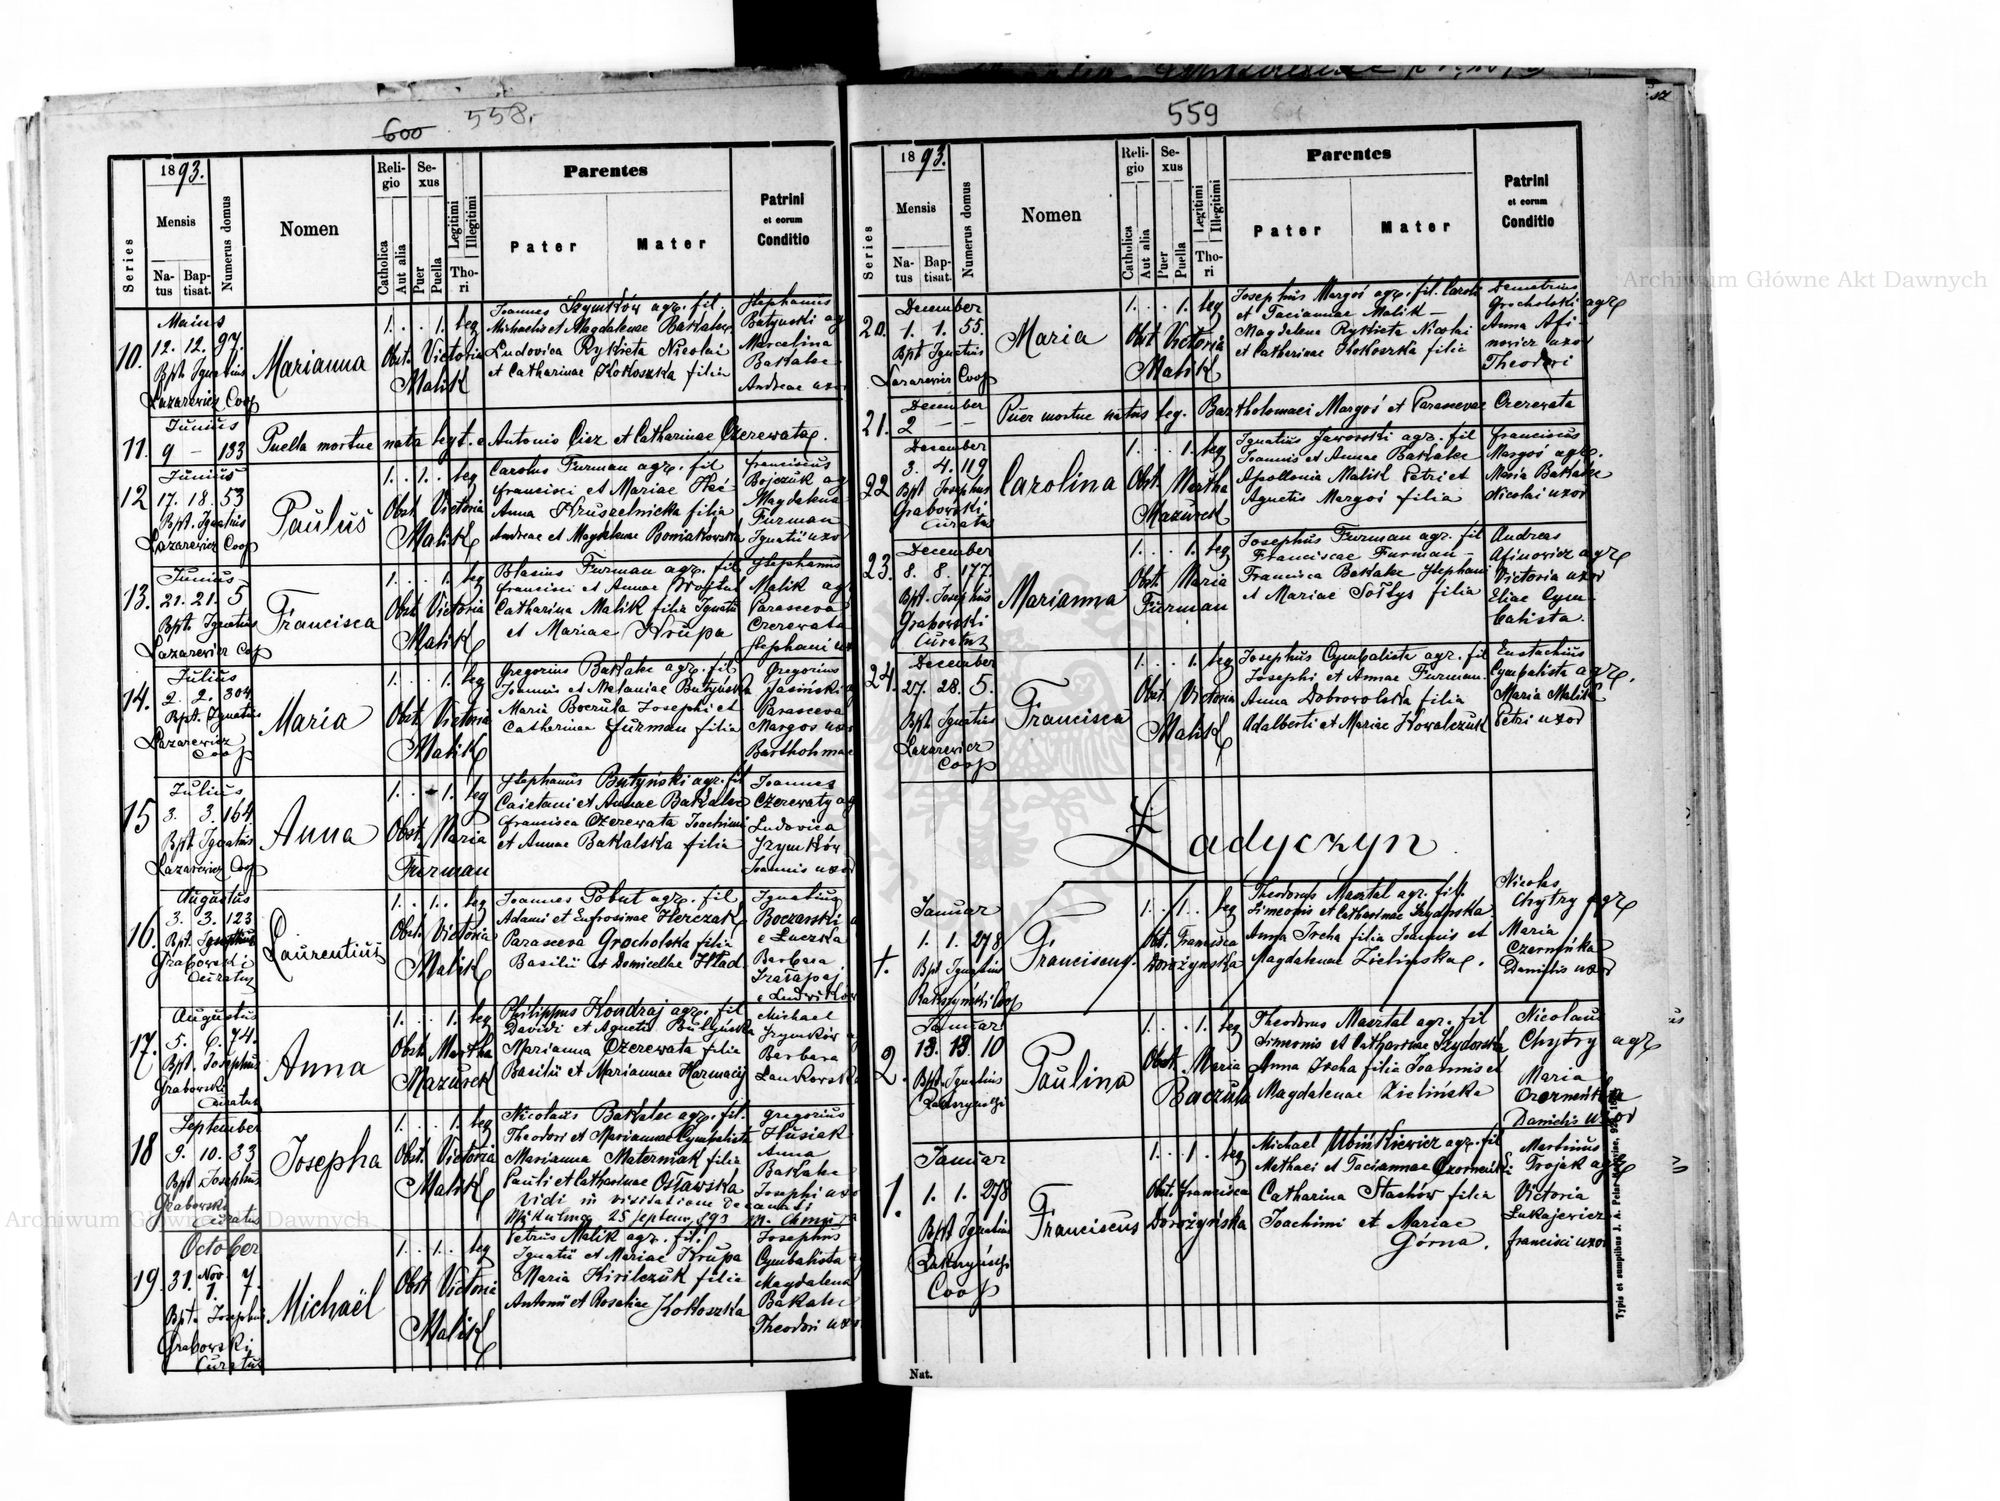 600 558.
1893.
Series
Mensis
Natus
Baptisat.
Numerus domus
Nomen
Religio
Catholica
Aut alia
Sexus
Puer
Puella
Legitimi
Illegitimi
Thori
Parentes
Pater Mater
Patrini
et eorum
Conditio
10.
Maius
12. 12. 97.
Bpt. Ignatius
Lazarewicz Coop
Marianna
1. . . 1. leg
Obst. Victoria
Malik
Joannes Szymków agr. fil
Michaelis et Magdalenae Bakalec
Ludovica Rykieta Nicolai
et Catharinae Kokoszka filia
Stephanus
Butynski ag
Marcelina
Bakalec
Andreae uxor
11.
Junius
9 — 133
Puella mortue nata legt. e Antonio Cisz et Catharinae Czerewata.
12
Junius
17. 18. 53
Bpt. Ignatius
Lazarewicz Coop
Paulus
1. . 1. . leg
Obst. Victoria
Malik
Carolus Furman agr. fil
Francisci et Mariae
Anna Hruszelnicka filia
Andreae et Magdalenae Boniakowska
Franciscus
Bojczuk ag
Magdalena
Furman
Ignatii uxo
13.
Junius
21. 21. 5
Bpt. Ignatius
Lazarewicz Coop
Francisca
1. . . 1. leg
Obst. Victoria
Malik
Blasius Furman agr. fil
Francisci et Annae
Catharina Malik filia Ignatii
et Mariae Krupa
Stephanus
Malik ag
Parasceva
Czerewata
Stephani ux
14.
Julius
2. 2. 304
Bpt. Ignatius
Lazarewicz
Coop
Maria
1. . . 1. leg
Obst. Victoria
Malik
Gregorius Bakalec agr. fil
Joannis et Melaniae Butyńska
Maria Boczula Josephi et
Catharinae Furman filia
Gregorius
Jasiński
Parasceva
Margos uxo
Bartholomae
15
Julius
3. 3. 164
Bpt. Ignatius
Lazarewicz Coop
Anna
1. . . 1. leg
Obst. Maria
Furman
Stephanus Butyński agr. fil
Caietani et Annae Bakalec
Francisca Czerewata Joachimi
et Annae Bakalska filia
Joannes
Czerewaty ag
Ludovica
Szymków
Joannis uxor
16.
Augustus
3. 3. 123
Bpt. Josephus
Grabowski
Curatus
Laurentius
1. . 1. . leg
Obst. Victoria
Malik
Joannes Pobut agr. fil
Adami et Eufrosinae Herczak
Parasceva Grocholska filia
Basilii et Domicellae Hlad.
Ignatius
Boczarski
e Luczka
Barbara
e Ludwików
17.
Augustus
5. 6. 74.
Bpt. Josephus
Grabowski
Curatus
Anna
1. . . 1. leg
Obst. Martha
Mazurek
Philippus Kondraj agr. fil
Davidi et Agnetis
Marianna Czerewata filia
Basilii et Mariannae Harmacij
Michael
Szymków
Barbara
Lankowska
18
September
9. 10. 33
Bpt. Josephus
Grabowski
Curatus
Josepha
1. . . 1. leg
Obst. Victoria
Malik
Nicolaus Bakalec agr. fil.
Theodori et Mariannae Cymbalista
Marianna Materniak filia
Pauli et Catharinae Ostawska
Vidi in visitatione Decanali
Mikulince 25 septemr. 893
Gregorius
Husiak
Anna
Bakalec
Josephi uxo
19.
October
31. Nov. 1. 7.
Bpt. Josephus
Grabowski
Curatus
Michaël
1. . 1. . leg
Obst. Victoria
Malik
Petrus Malik agr. fil.
Ignatii et Mariae Krupa
Maria Kirilczuk filia
Antonii et Rosaliae Kokoszka
Josephus
Cymbalista
Magdalena
Bakalec
Theodori uxo
559
1893.
Series
Mensis
Natus
Baptisat.
Numerus domus
Nomen
Religio
Catholica
Aut alia
Sexus
Puer
Puella
Legitimi
Illegitimi
Thori
Parentes
Pater Mater
Patrini
et eorum
Conditio
20.
December
1. 1. 55.
Bpt Ignatius
Lazarewicz Coop
Maria
1. . . 1. leg
Obst Victoria
Malik
Josephus Margoś agr. fil. Caroli
et Taciannae Malik —
Magdalena Rykieta Nicolai
et Catharinae Kokoszka filia
Demetrius
Grocholski agr
Anna Afi-
nowicz uxor
Theodori
21.
December
2 — —
Puer mortue natus leg. Bartholomaei Margoś et Parascevae Czerewata
22
December
3. 4. 119
Bpt Josephus
Grabowski
Curatus
Carolina
1. . . 1. leg
Obst. Martha
Mazurek
Ignatius Jaworski agr. fil
Joannis et Annae Bakalec
Apollonia Malik Petri et
Agnetis Margoś filia
Franciscus
Margoś agr.
Maria Bakalec
Nicolai uxor
23.
December
8. 8. 177.
Bpt. Josephus
Grabowski
Curatus
Marianna
1. . . 1. leg
Obst. Maria
Furman
Josephus Furman agr. fil
Franciscae Furman —
Francisca Bakalec Stephani
et Mariae Sołtys filia
Andreas
Afinowicz agr
Victoria uxor
Eliae Cym-
balista.
24.
December
27. 28. 5.
Bpt Ignatius
Lazarewicz
Coop
Francisca
1. . . 1. leg
Obst. Victoria
Malik
Josephus Cymbalista agr. fil
Josephi et Annae Furman.
Anna Dobrowolska filia
Adalberti et Mariae Kowalczuk
Eustachius
Cymbalista agr.
Maria Malik
Petri uxor
Ładyczyn.
Januar
1. 1. 278
Bpt Ignatius
Coop
Franciscus.
1. . 1. . leg
Obt. Francisca
Dorożynska
Theodorus Masztal agr. fil.
Simeonis et Catharinae Szydorska
Anna Ircha filia Joannis et
Magdalenae Zielinska.
Nicolas
Chytry agr
Maria
Czerninska
Danielis uxor
2.
Januar
13. 13. 10
Bpt. Ignatius
Paulina
1. . . 1. leg
Obst. Maria
Baczula
Theodorus Masztal agr. fil
Simeonis et Catharinae Szydorska
Anna Ircha filia Joannis et
Magdalenae Zielińska
Nicolaus
Chytry agr
Maria
Danielis uxor
1.
Januar
1. 1. 278
Bpt Ignatius
Coop
Franciscus
1. . 1. . leg
Obst. Francisca
Dorożyńska
Michael Ubińkiewicz agr. fil
Mathaei et Taciannae
Catharina Stachów filia
Joachimi et Mariae
Górna.
Martinus
Trojak agr
Victoria
Łukajewicz
Francisci uxor
Nat.
Archiwum Główne Akt Dawnych
Archiwum Główne Akt Dawnych